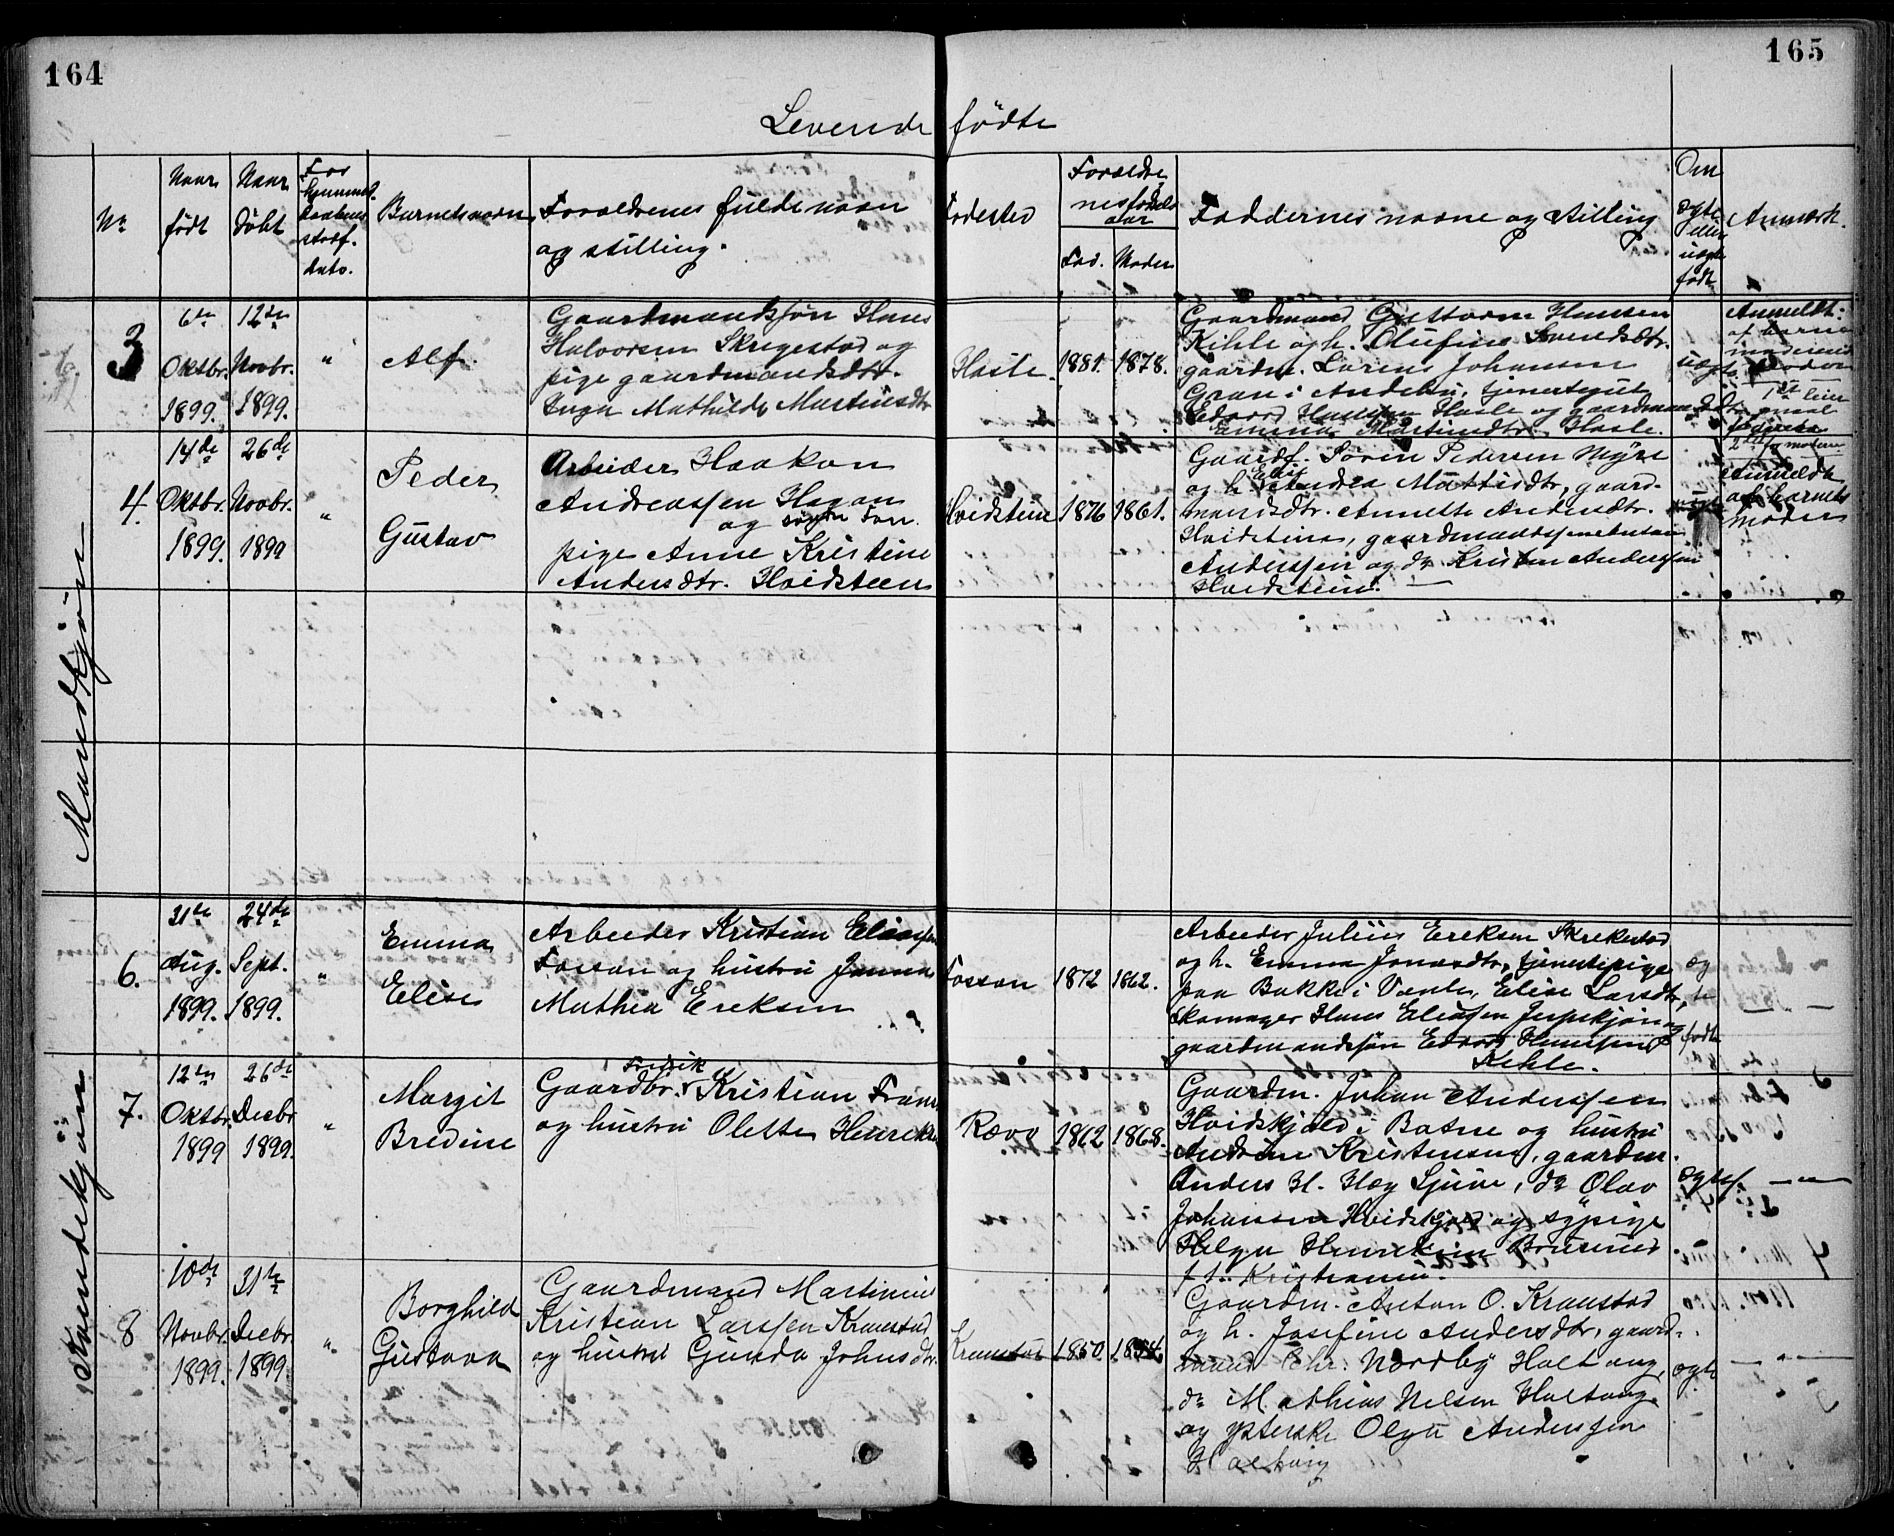 164
165
Levende fødte
Nr
Naar født
Naar døbt
For hjemmedaabens stadf. dato.
Barnets navn
Forældrenes fulde navn og stilling.
Fødested
Forældrenes fødselsaar
Fad. Moder
Faddernes navne og stilling
Om ægte eller uægte født
Anmærk.
Mandkjøn
3
6te Oktbr. 1899.
12te Novbr. 1899.
"
Alf.
Gaardmandssøn Hans
Halvorsen Skregestad og
pige gaardmandsdtr.
Inga Mathilde Martinsdtr
Hasle
1881. 1878.
Gaardmand Gustav Hansen
Kihle og h. Olufine Svendsdtr.
gaardm. Lorens Johansen
Gran i Andebu, tjenestegut
Edvard Hansen Hasle og gaardmandsdtr.
Emma Martinsdtr. Hasle.
uægte
Anmeldt
af barnets
moder
1ste leier
maal
2det for moderen
4.
14de Oktbr. 1899.
26de Novbr. 1899
"
Peder
Gustav
Arbeider Haakon
Andreassen Hagan
og søndre Fon.
pige Anne Kristine
Andersdtr. Hvidsteen
Hvidstein
1876 1861.
Gaardf. Søren Pedersen Myre
og h. Andrea Mathisdtr, gaard-
mandsdtr. Annette Andersdtr.
Hvidstein, gaardmandssøn
Anderssen og do Kristen Anderssen
Hvidstein.
Anmeldt
af barnets
moder
Kvindekjøn
6.
31te Aug. 1899.
24de Sept. 1899.
"
Emma
Elise
Arbeider Kristian Eliassen
Fossan og hustru Janna
Mathea Ereksen
Fossan
1872 1862.
Arbeider Julius Ereksen Skrekestad
og h. Emma Jonasdtr, tjenestepige
paa Bakke i Vaale, Elise Larsdtr,
skomager Hans Eliassen Jerpekjøn og
gaardmandssøn Edvard Hansen
Kehle.
ægte født
7.
12te Oktbr. 1899
26de Decbr 1899.
"
Margit
Bredine
Gaardbr. Fredrik Kristian Fram
og hustru Olette Henreks
Rævo
1862 1868.
Gaardm. Johan Anderssen
Hvidskjold i Botne og hustru
Andrine Kristensen, gaardm.
Anders H. Hæg Sjuve, do Olav
Johansen Hvidskjold og sypige
Helga Henreksen Bruserud
f. t. Kristiania.
ægtef. — " —
8
10de Novbr. 1899.
31te Decbr 1899
"
Borghild
Gustava
Gaardmand Martinius
Kristian Larssen Kraustad
og hustru Gunda Johnsdtr.
Kraustad
1850. 1854.
Gaardm. Anton O. Kraustad
og h. Josefine Andersdtr, gaard-
mand Chr. Nordby Holtung,
do Mathias Nelsen Holtung
og ysterske Olga Anderssen
Holtung
ægte — " —